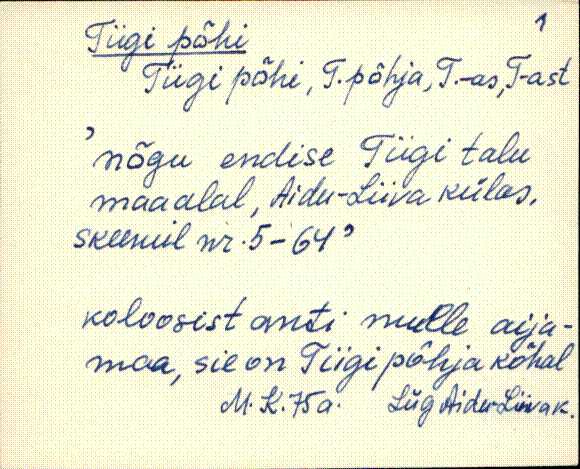 1
Tiigi põhi
Tiigi põhi, T. põhja, T.-as, T-ast
'nõgu endise Tiigi talu
maa alal, Aidu-Liiva külas,
skeemil nr. 5-64'
koloosist anti mulle aija-
maa, sie on Tiigi põhja kõhal
M. K. 75 a. Lüg Aidu-Liiva k.